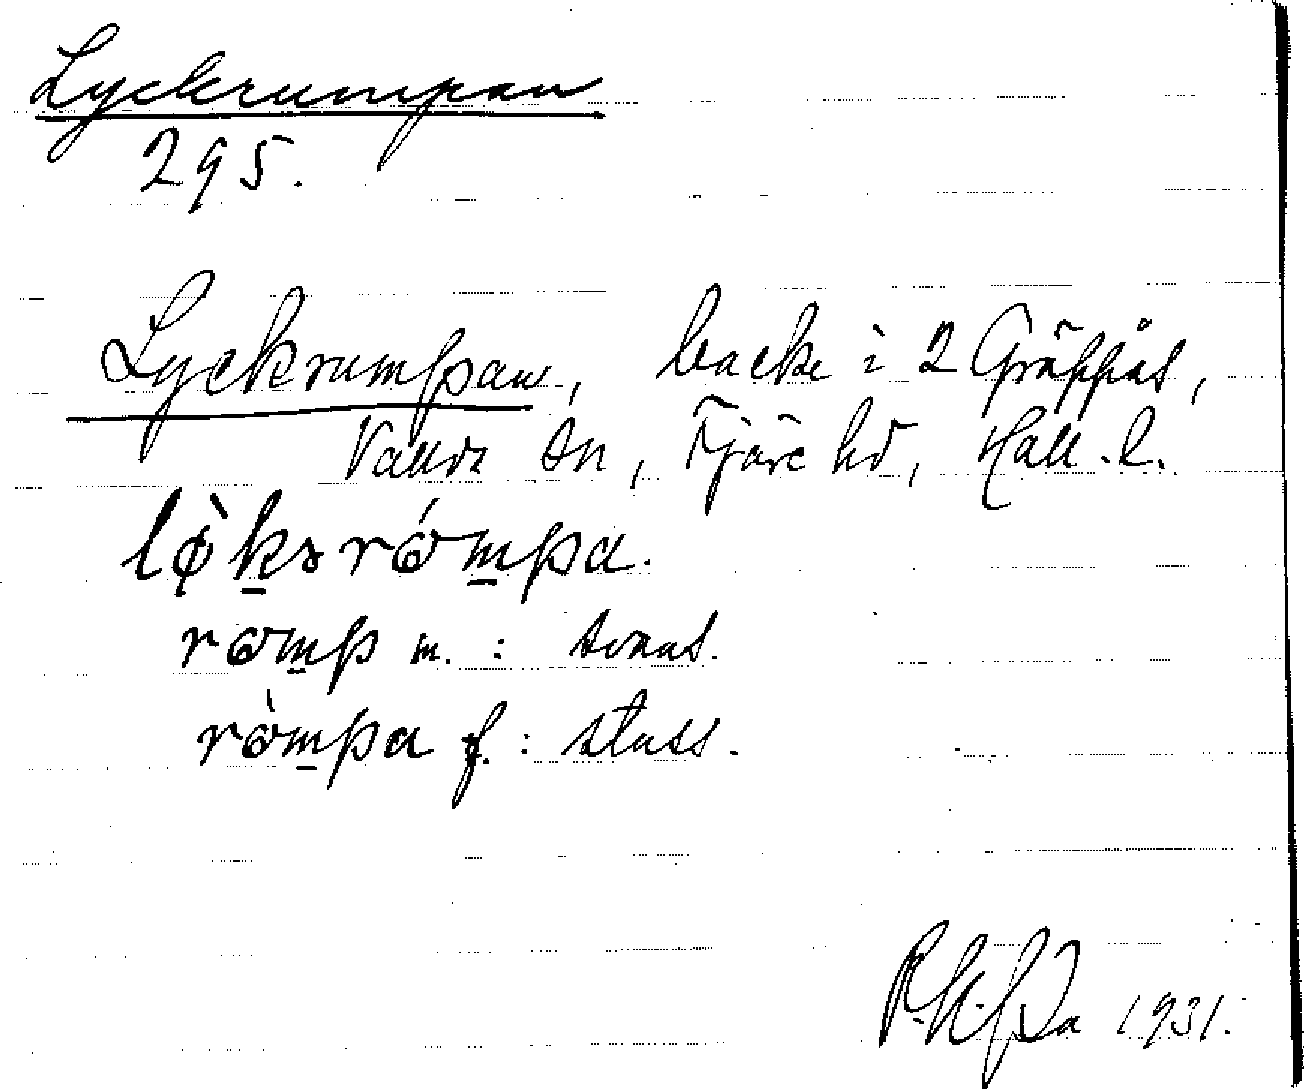 Lyckrumpan
295.
Lyckrumpan, backe i 2 Gräppås,
Vallda sn, Fjäre hd, Hall. l.
lø̀ksrǿmpa.
rømp m. : svans.
rø̀mpa f. : stuss.
1931.